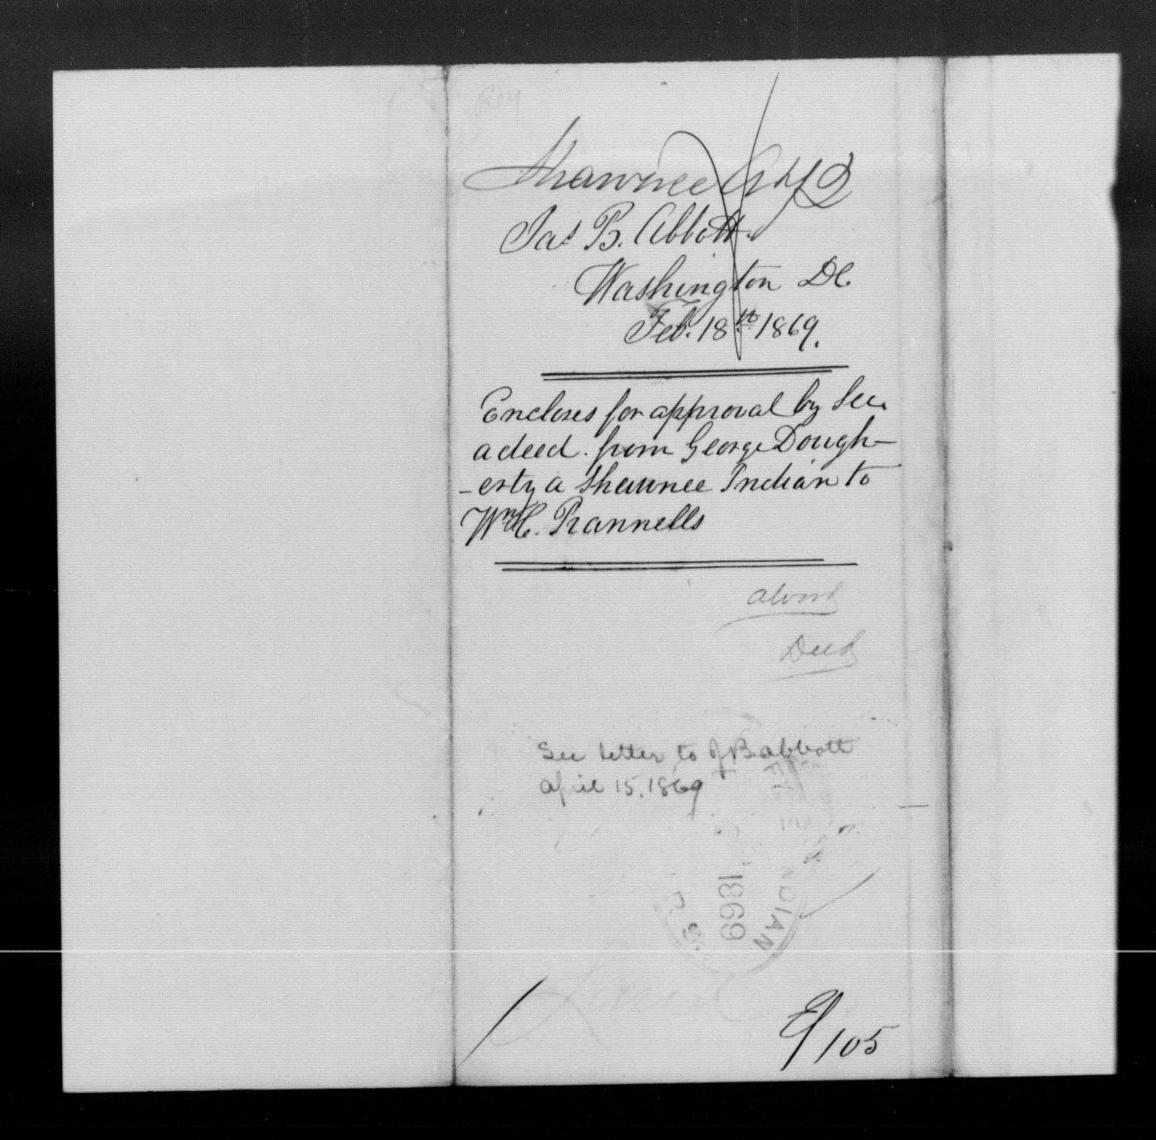 Shawnee
Jas B. Abbott.
Washington DC.
Feb. 18th 1869.
Encloses for approval by Sec.
a deed. from George Dough-
-erty a Shawnee Indian to
Wm C. Prannells
Alvord
Deed
See letter to J B Abbott
April 15, 1869
1869
INDIAN
105